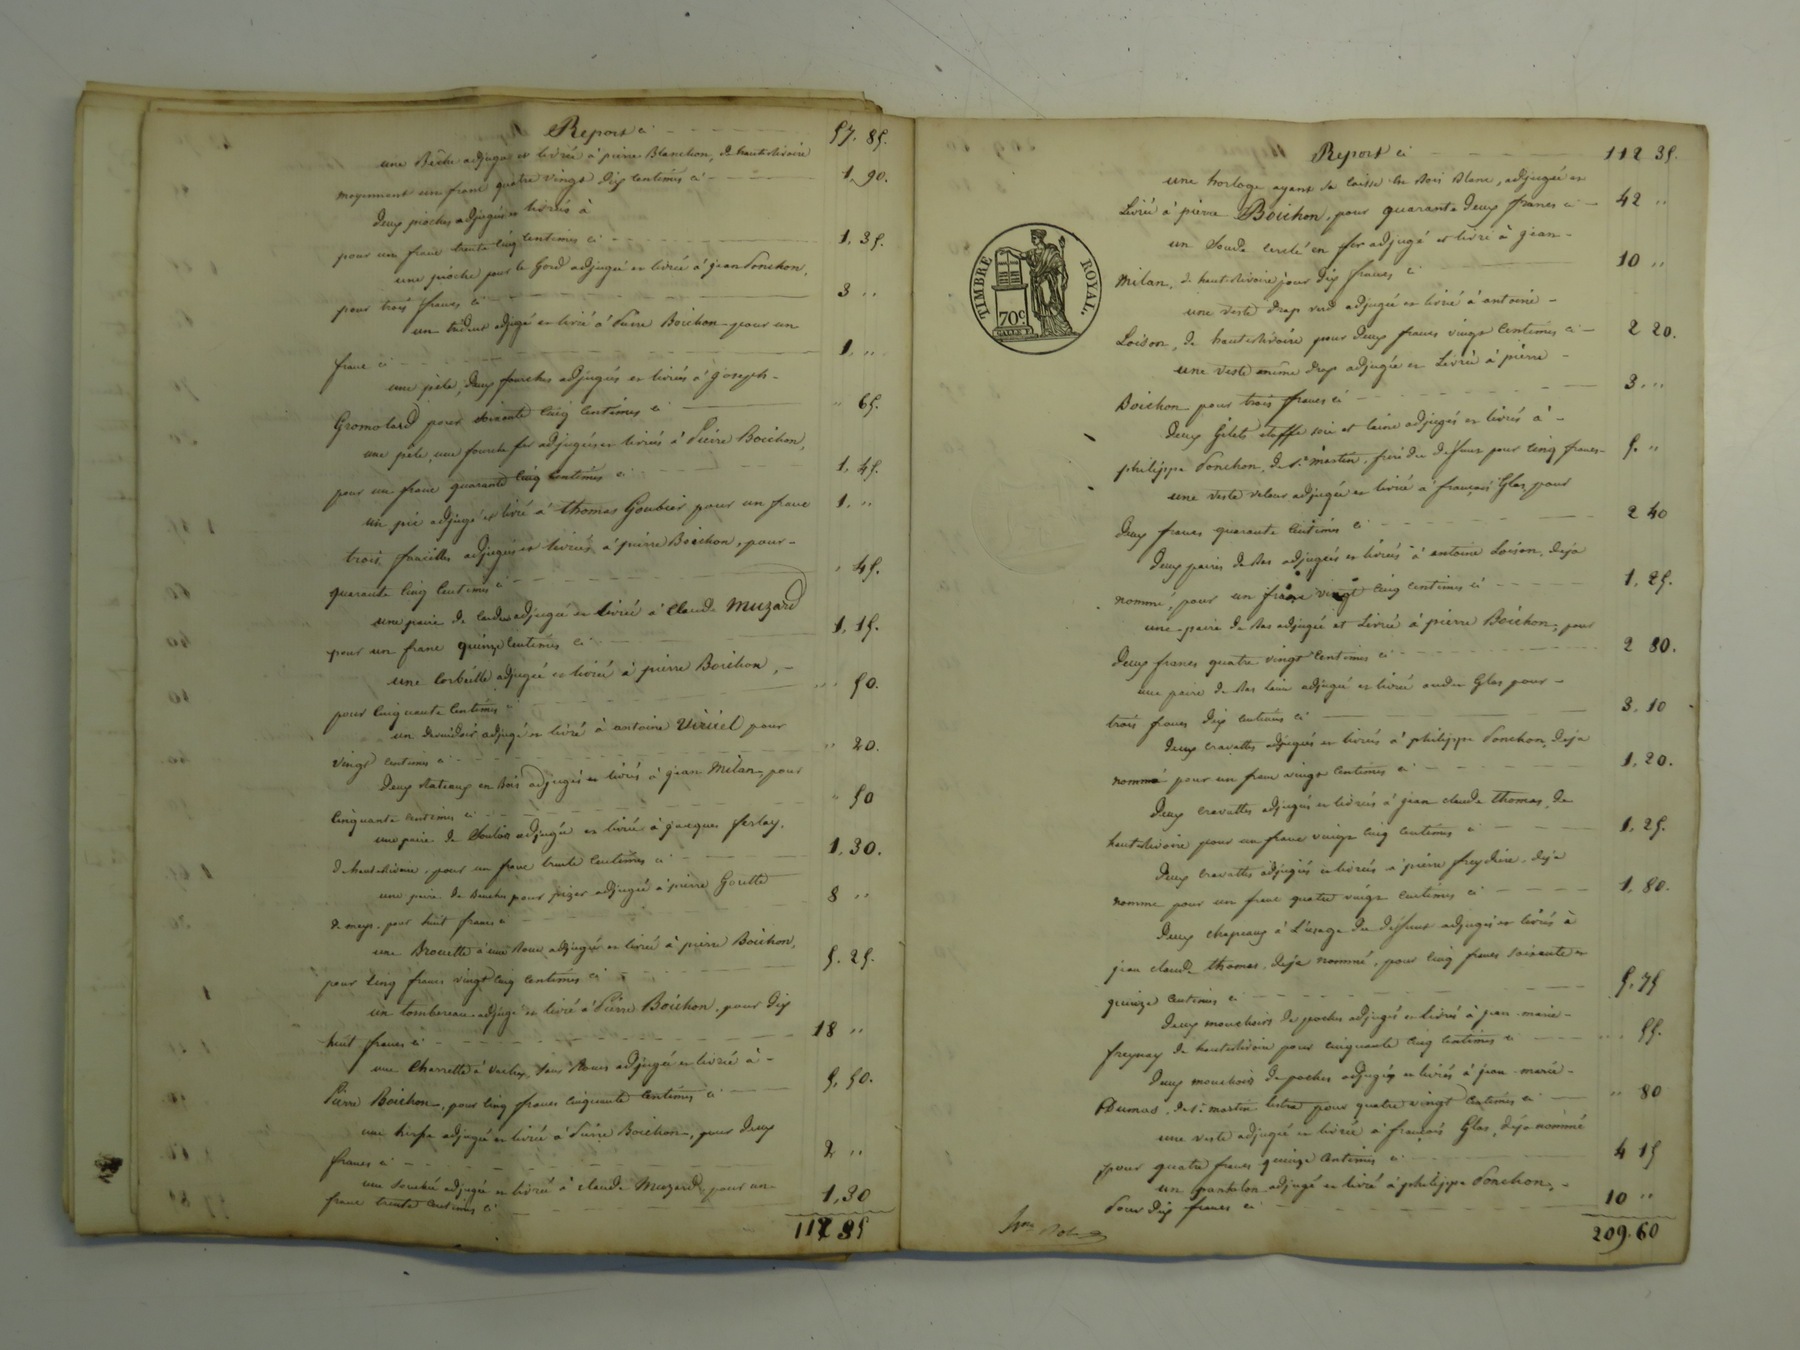 Report ci 57. 85.
une Bêche adjugée et livrée à pierre Blanchon, de hauterivoire
moyennant un franc quatre vingt dix centimes ci 1. 90.
deux pioches adjugées et livrées à
pour un franc trente cinq centimes ci 1. 35.
une pioche pour le Gord adjugée et livrée à jean Ponchon,
pour trois francs ci 3 "
un trident adjugé et livré à Pierre Boichon pour un
franc ci 1. "
une pèle, deux fourches adjugées et livrées à joseph
Gromolard pour soixante cinq centimes ci " 65.
une pèle, une fourche fer adjugées et livrées à Pierre Boichon,
pour un franc quarante cinq centimes ci 1. 45.
un pic adjugé et livré à thomas Goubier pour un franc 1. "
trois faucilles adjugées et livrées à pierre Boichon, pour
quarante cinq centimes ci " 45.
une paire de adjugée et livrée à Claude Muzard
pour un franc quinze centimes ci 1. 15.
une Corbeille adjugée et livrée à pierre Boichon,
pour cinquante centimes ci " 50.
un devidoir adjugé et livré à antoine Viricel pour
vingt centimes ci " 20.
deux plateaux en bois adjugés et livrés à jean Milan, pour
cinquante centimes ci " 50
une paire de adjugée et livrée à jacques ferlay,
d'hauterivoire, pour un franc trente centimes ci 1. 30.
une paire de pour adjugée à pierre
pour huit francs ci 8 "
une Brouette à une Roue adjugée et livrée à pierre Boichon,
pour cinq francs vingt cinq centimes ci 5. 25.
un tombereau adjugé et livré à Pierre Boichon, pour dix
huit francs ci 18 "
une Charrette à vaches, sans Roues adjugée et livrée à
Pierre Boichon, pour cinq francs cinquante centimes ci 5. 50.
une herse adjugée et livrée à Pierre Boichon, pour deux
francs ci 2 "
une adjugée et livrée à claude Muzard, pour un
franc trente centimes ci 1. 30
112 35
Report ci 112 35.
une horloge ayant sa caisse en Bois Blanc, adjugée et
Livrée à pierre Boichon, pour quarante deux francs ci 42 "
un cerclé en fer adjugé et livré à jean
Milan, de hauterivoire pour dix francs ci 10 "
une veste drap verd adjugée et livrée à antoine
Loison, de hauterivoire pour deux francs vingt centimes ci 2 20.
une veste même drap adjugée et Livrée à pierre
Boichon pour trois francs ci 3. "
deux Gilets étoffe soie et laine adjugés et livrés à
philippe Ponchon, de St. martin, frère du deffunt pour cinq francs 5. "
une veste velour adjugée et livrée à françois Glas pour
deux francs quarante centimes ci 2 40
deux paires de Bas adjugées et livrées à antoine Loison, déja
nommé, pour un franc vingt cinq centimes ci 1. 25.
une paire de Bas adjugée et Livrée à pierre Boichon, pour
deux francs quatre vingt centimes ci 2 80.
une paire de Bas laine adjugée et livrée audit Glas pour
trois francs dix centimes ci 3. 10
deux cravattes adjugées et livrées à philippe Ponchon, déja
nommé pour un franc vingt centimes ci 1. 20.
deux cravattes adjugées et livrées à jean claude thomas, de
hauterivoire pour un franc vingt cinq centimes ci 1. 25.
deux cravattes adjugées et livrées à pierre freydière, déja
nommé pour un franc quatre vingt centimes ci 1. 80.
deux chapeaux à L'usage du deffunt adjugés et livrés à
jean claude thomas, déja nommé, pour cinq francs soixante et
quinze centimes ci 5. 75
deux mouchoirs de poches adjugés et livrés à jean-marie
freynay de hauterivoire pour cinquante cinq centimes ci " 55.
deux mouchoirs de poches adjugés et livrés à jean-marie
Dumas, de St. martin lestra pour quatre vingt centimes ci " 80
une veste adjugée et livrée à françois Glas, déja nommé
pour quatre francs quinze centimes ci 4 15
un pantalon adjugé et livré à philippe Ponchon,
Pour dix francs ci 10 "
209. 60
TIMBRE ROYAL.
70c